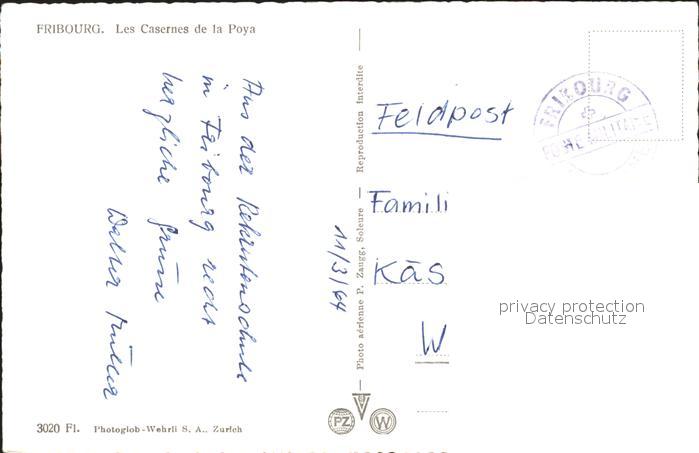 FRIBOURG. Les Casernes de la Poya
Aus der Rekrutenschule
in Fribourg recht
herzliche Grüsse
Walter Müller
11/3/64
Reproduction interdite
Photo aérienne P. Zaugg, Soleure
Feldpost
FRIBOURG
POSTE MILITAIRE
Famili
Käs
W
privacy protection
Datenschutz
PZ
W
3020 Fl. Photoglob-Wehrli S. A., Zurich